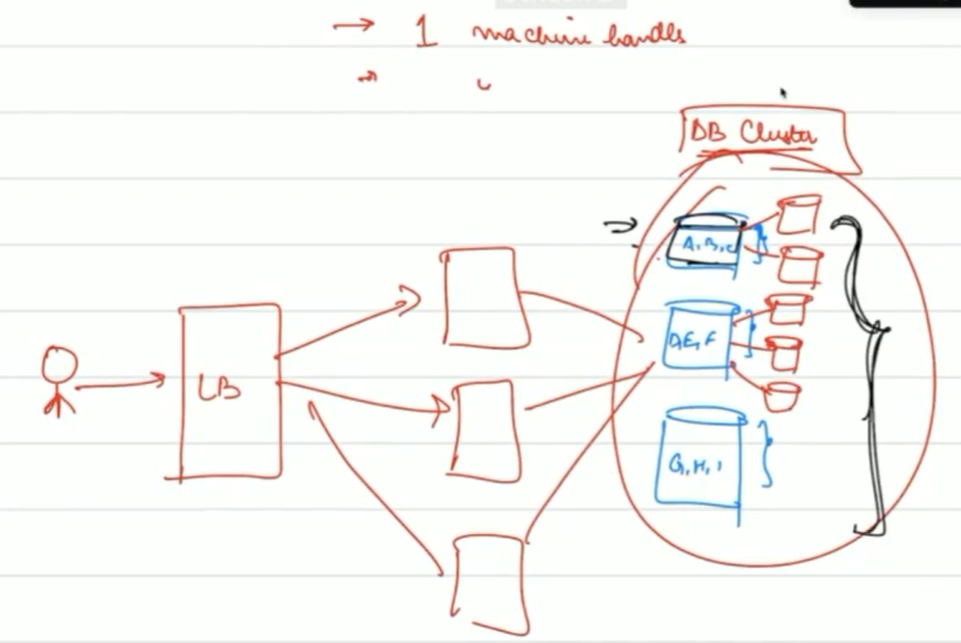 → 1 machine handles
→
DB Cluster
A, B, C
D, E, F
LB
G, H, I